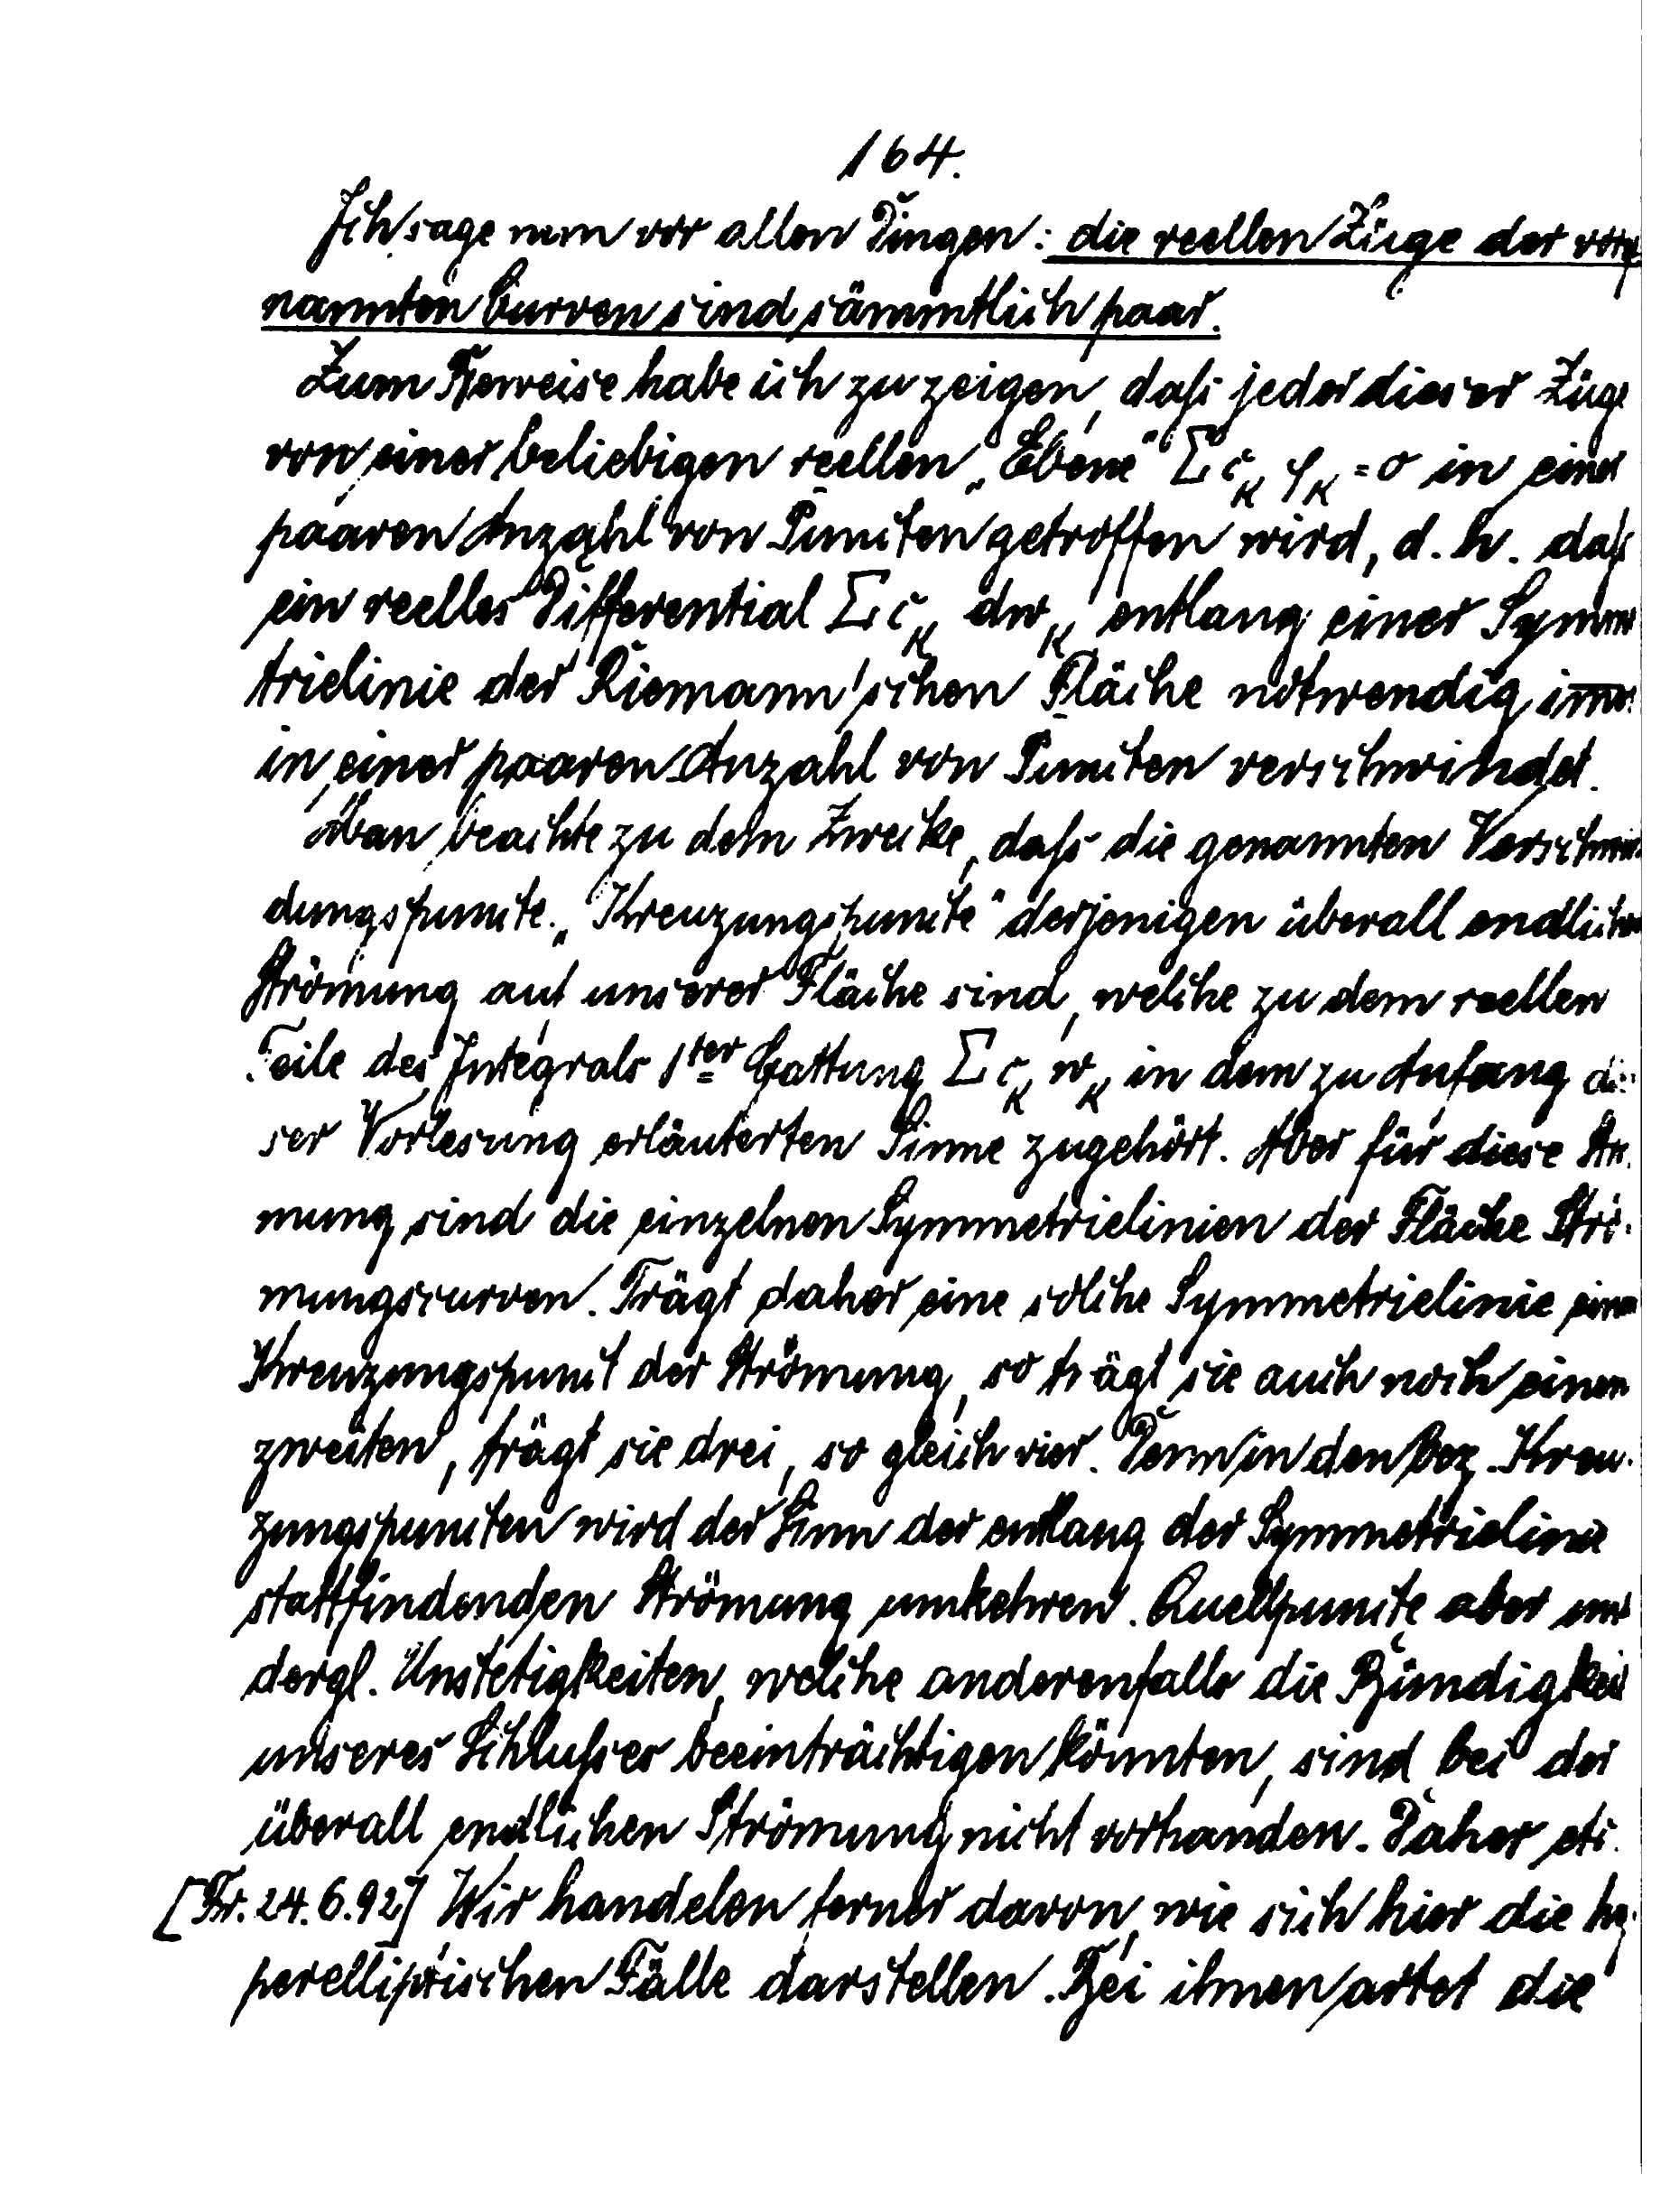 164.
Ich sage nun vor allen Dingen: die reellen Züge der vorge
nannten Curven sind sämmtlich paar.
Zum Beweise habe ich zu zeigen, daß jeder dieser Züge
von einer beliebigen reellen „Ebene" Σ c_κ φ_κ = 0 in einer
paaren Anzahl von Puncten getroffen wird, d. h. daß
ein reelles Differential Σ c_κ dw_κ entlang einer Symme
trielinie der Riemann'schen Fläche notwendig
in einer paaren Anzahl von Puncten verschwindet.
Man beachte zu dem Zwecke, daß die genannten Verschwin
dungspuncte „Kreuzungspuncte" derjenigen überall endlichen
Strömung auf unserer Fläche sind, welche zu dem reellen
Teile des Integrals 1ter Gattung Σ c_κ w_κ in dem zu Anfang die
ser Vorlesung erläuterten Sinne zugehört. Aber für diese Strö
mung sind die einzelnen Symmetrielinien der Fläche Strö
mungscurven. Trägt daher eine solche Symmetrielinie einen
Kreuzungspunct der Strömung, so trägt sie auch noch einen
zweiten, trägt sie drei, so gleich vier. Denn in den bez. Kreu-
zungspuncten wird der Sinn der entlang der Symmetrielinie
stattfindenden Strömung umkehren. Quellpuncte aber und
dergl. Unstetigkeiten, welche anderenfalls die Bündigkeit
unseres Schlußes beeinträchtigen könnten, sind bei der
überall endlichen Strömung nicht vorhanden. Daher etc.
[Fr. 24.6.92] Wir handelen ferner davon, wie sich hier die hy-
perelliptischen Fälle darstellen. Bei ihnen artet die